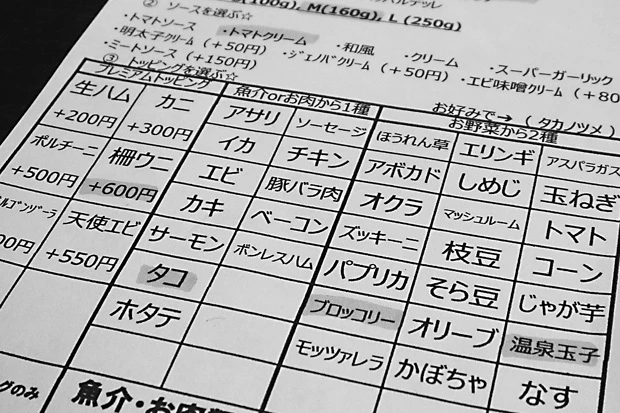 (100g), M(160g), L (250g)
② ソースを選ぶ☆
・トマトソース ・トマトクリーム ・和風 ・クリーム ・スーパーガーリック
・明太子クリーム（＋50円） ・ジェノバクリーム（＋50円） ・エビ味噌クリーム（＋80
・ミートソース（＋150円）
③ トッピングを選ぶ☆
お好みで→（ タカノツメ ）
プレミアムトッピング 魚介orお肉から1種 お野菜から2種
生ハム +200円 カニ +300円 アサリ ソーセージ ほうれん草 エリンギ アスパラガス
ポルチーニ +500円 柵ウニ +600円 イカ チキン アボカド しめじ 玉ねぎ
天使エビ +550円 エビ 豚バラ肉 オクラ マッシュルーム トマト
カキ ベーコン ズッキーニ 枝豆 コーン
サーモン ボンレスハム パプリカ そら豆 じゃが芋
タコ ブロッコリー オリーブ 温泉玉子
ホタテ モッツァレラ かぼちゃ なす
グのみ 魚介・お肉